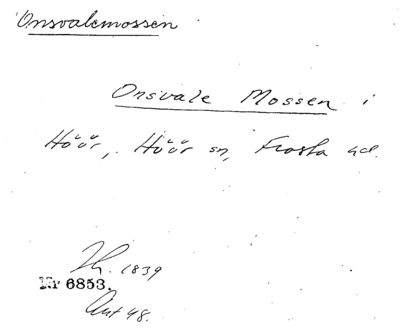 Onsvalemossen
Onsvale Mossen i
Höör, Höör sn, Frosta hd.
Th. 1839
Nr 6853.
Ant 48.